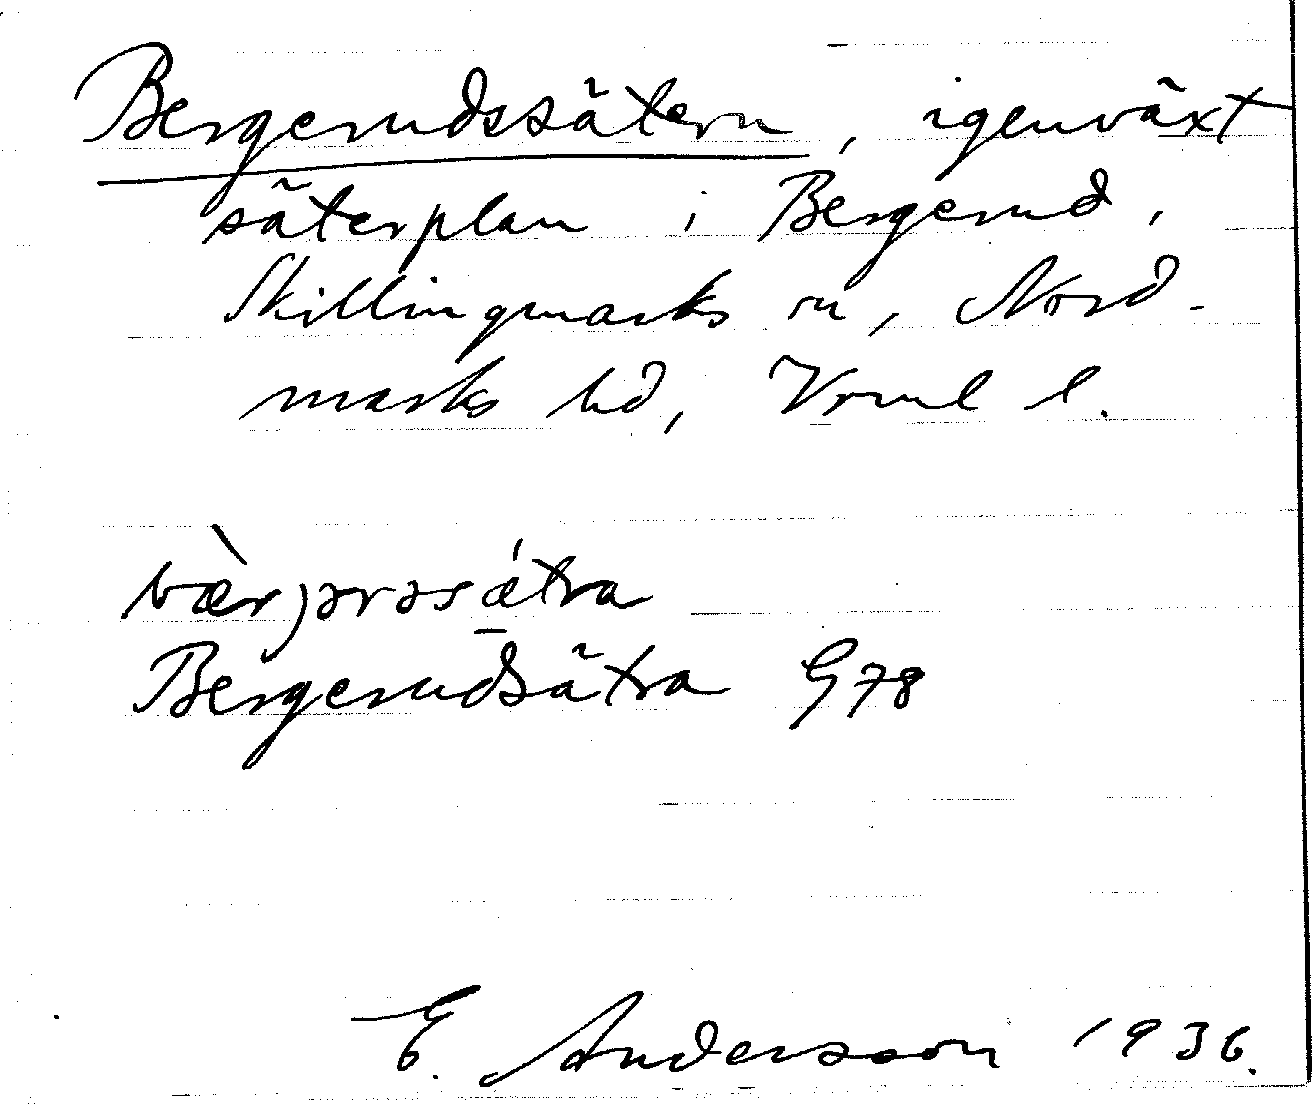 Bergerudssätern, igenväxt
säterplan i Bergerud,
Skillingmarks sn, Nord-
marks hd, Vrml l.
bæ̀rjərəsǽtra
Bergerudsätra G78
E. Andersson 1936.